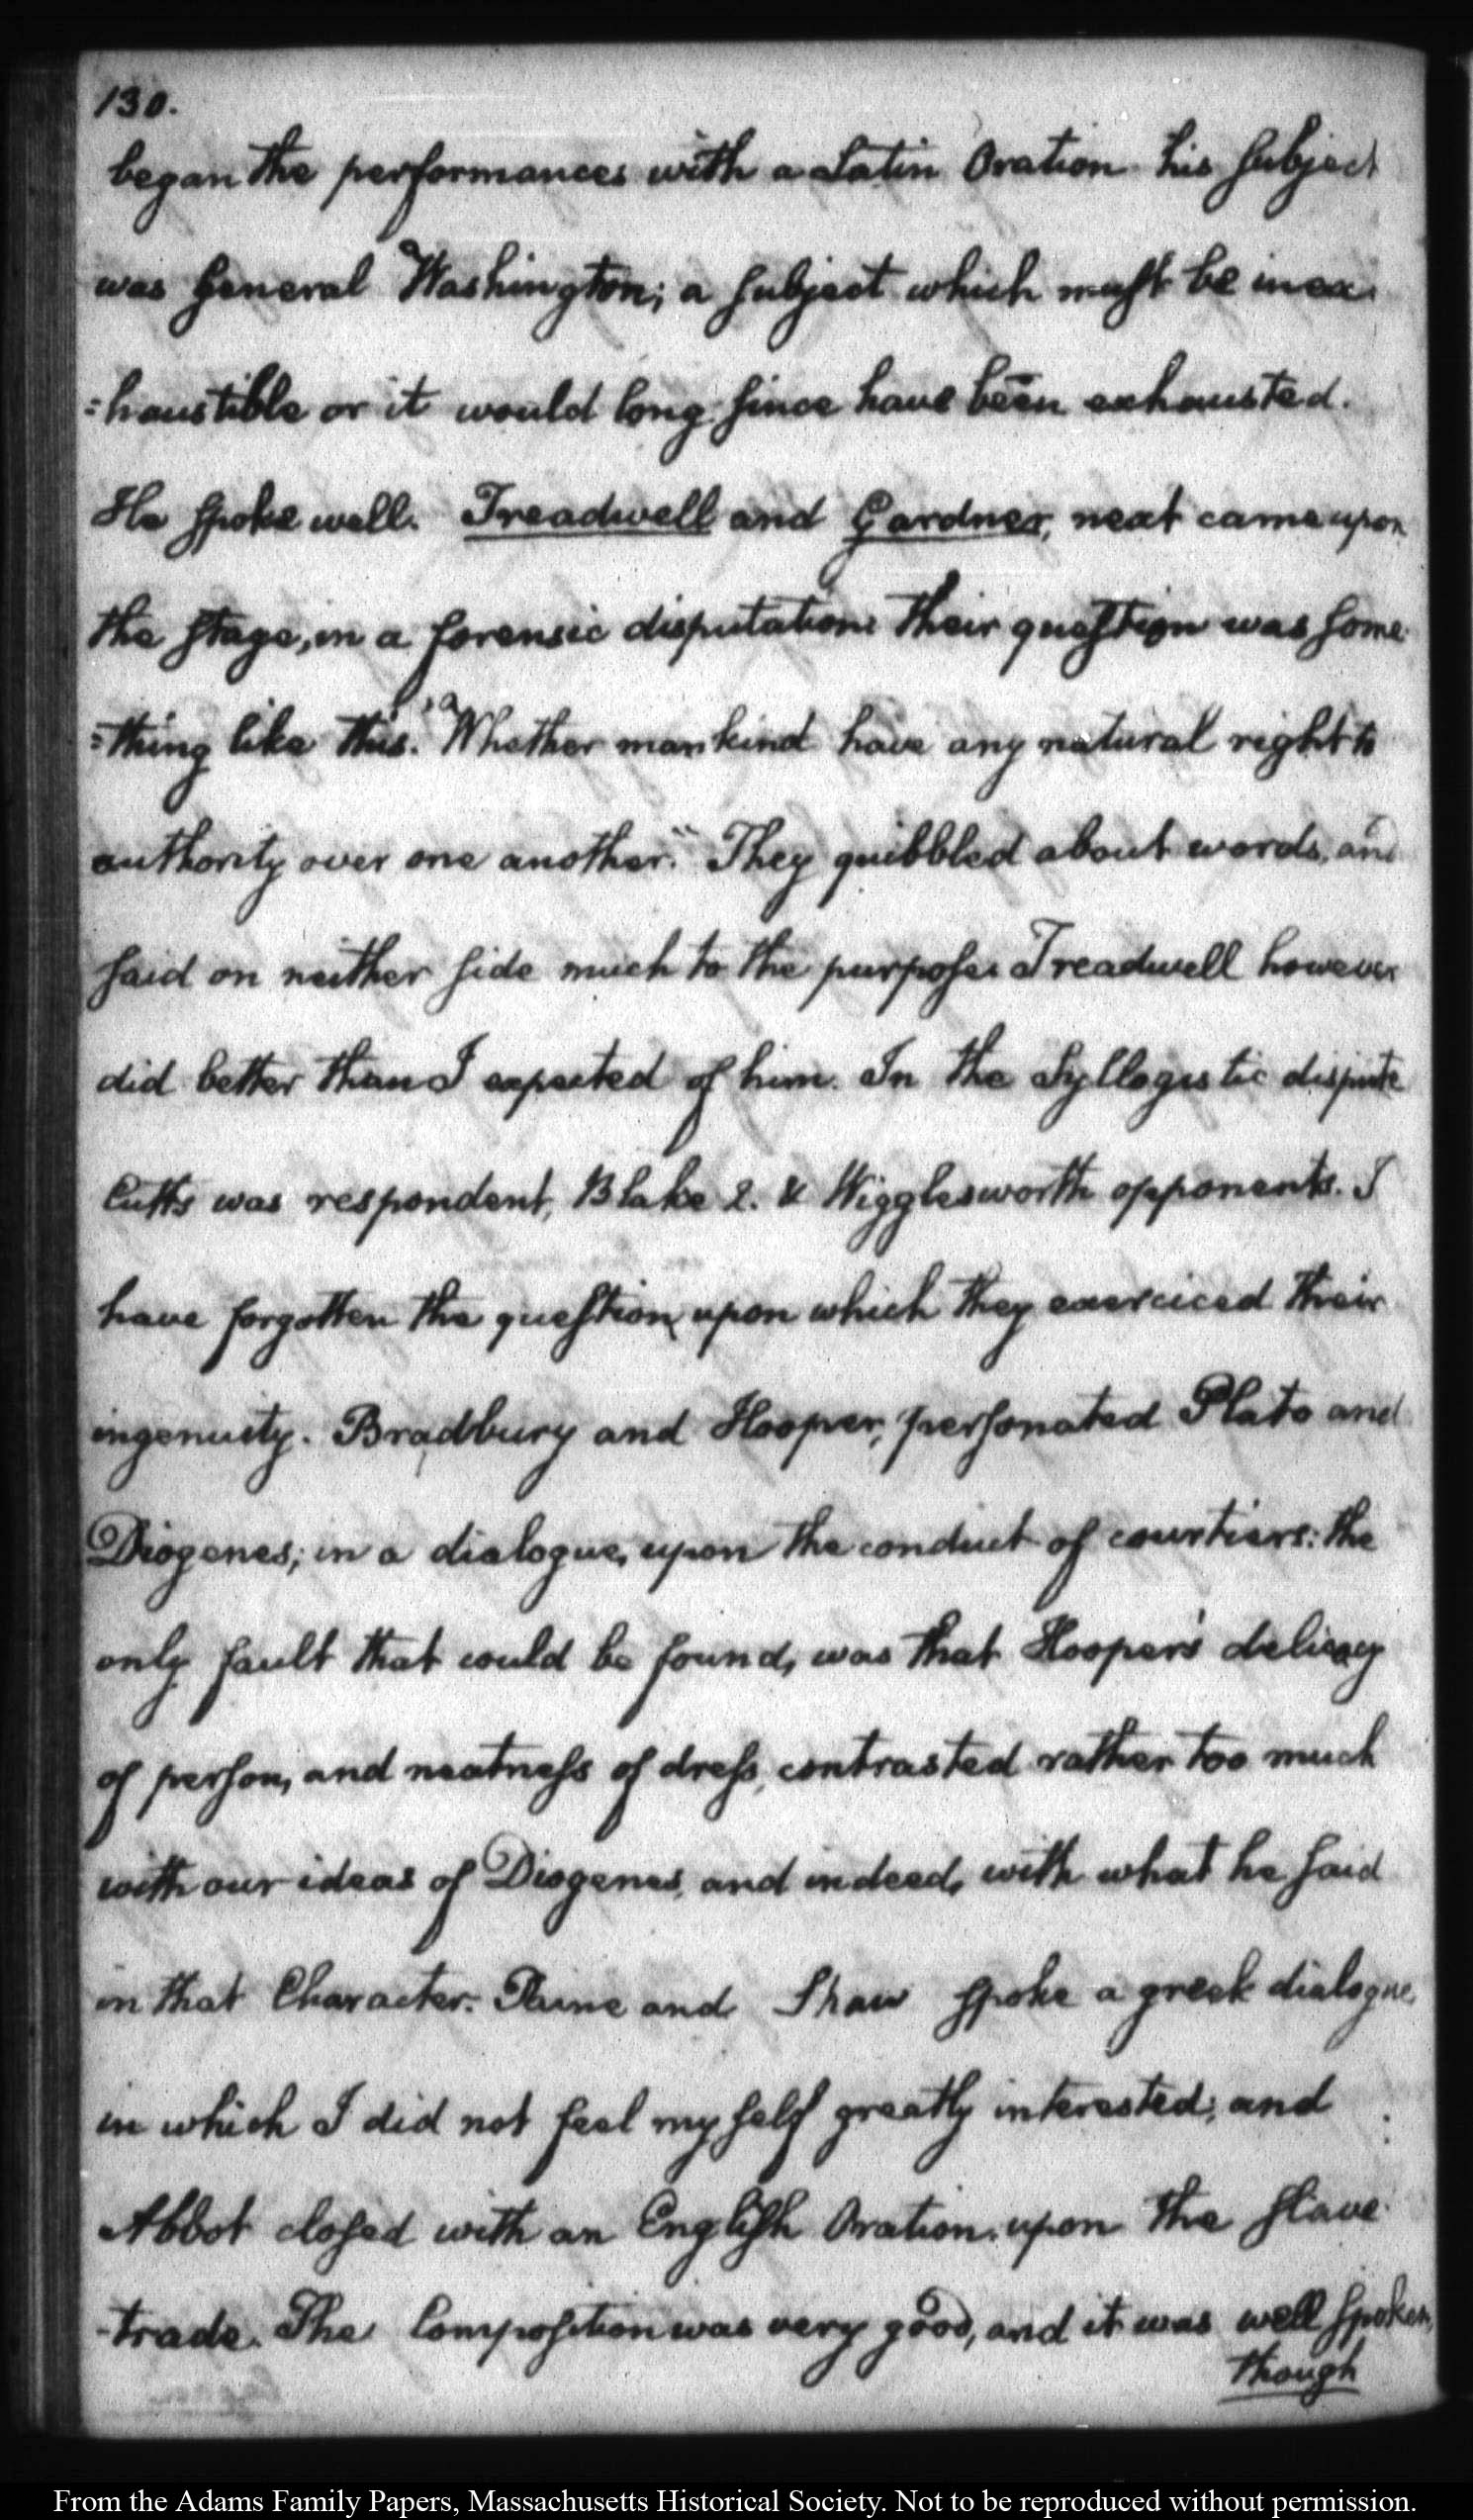 130.
began the performances with a Latin Oration his subject
was General Washington; a subject which must be inex
=haustible or it would long since have been exhausted.
He spoke well. Treadwell and Gardner, next came upon
the stage, in a forensic disputation: their question was some
=thing like this. "Whether mankind have any natural right to
authority over one another." They quibbled about words, and
said on neither side much to the purpose. Treadwell however
did better than I expected of him. In the Syllogistic dispute
Cutts was respondent, Blake 2. & Wigglesworth opponents. I
have forgotten the question, upon which they exerciced their
ingenuity. Bradbury and Hooper, personated Plato and
Diogenes; in a dialogue, upon the conduct of courtiers: the
only fault that could be found, was that Hooper's delicacy
of person, and neatness of dress, contrasted rather too much
with our ideas of Diogenes, and indeed, with what he said
in that Character. Paine and Shaw spoke a greek dialogue,
in which I did not feel myself greatly interested; and
Abbot closed with an English Oration. upon the slave
-trade. The Composition was very good, and it was well spoken,
though
From the Adams Family Papers, Massachusetts Historical Society. Not to be reproduced without permission.